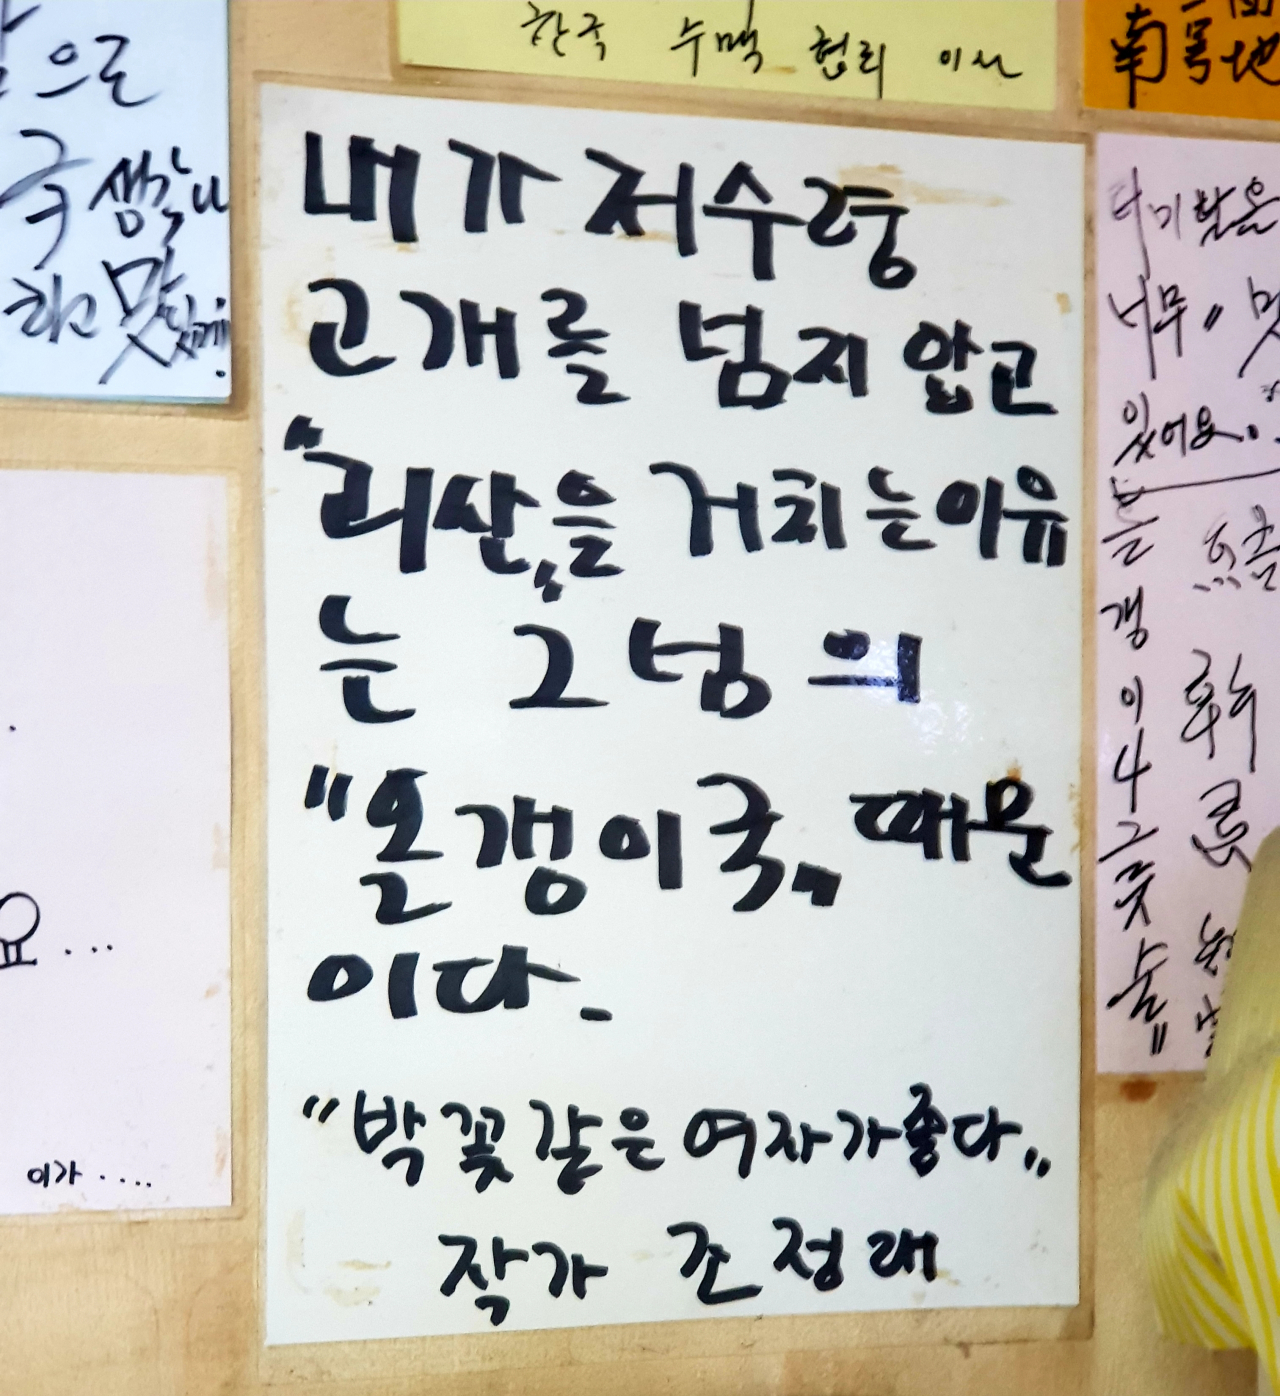 한국 수맥 협회 이사
南
地
으로
생각나
맛
내가 저수령
고개를 넘지 않고
"괴산"을 거치는 이유
는 그넘의
"올갱이국" 때문
이다.
"박꽃 같은 여자가 좋다"
작가 조정래
요...
이가....
다미맞은
너무" 맛
있어요.
는갱이